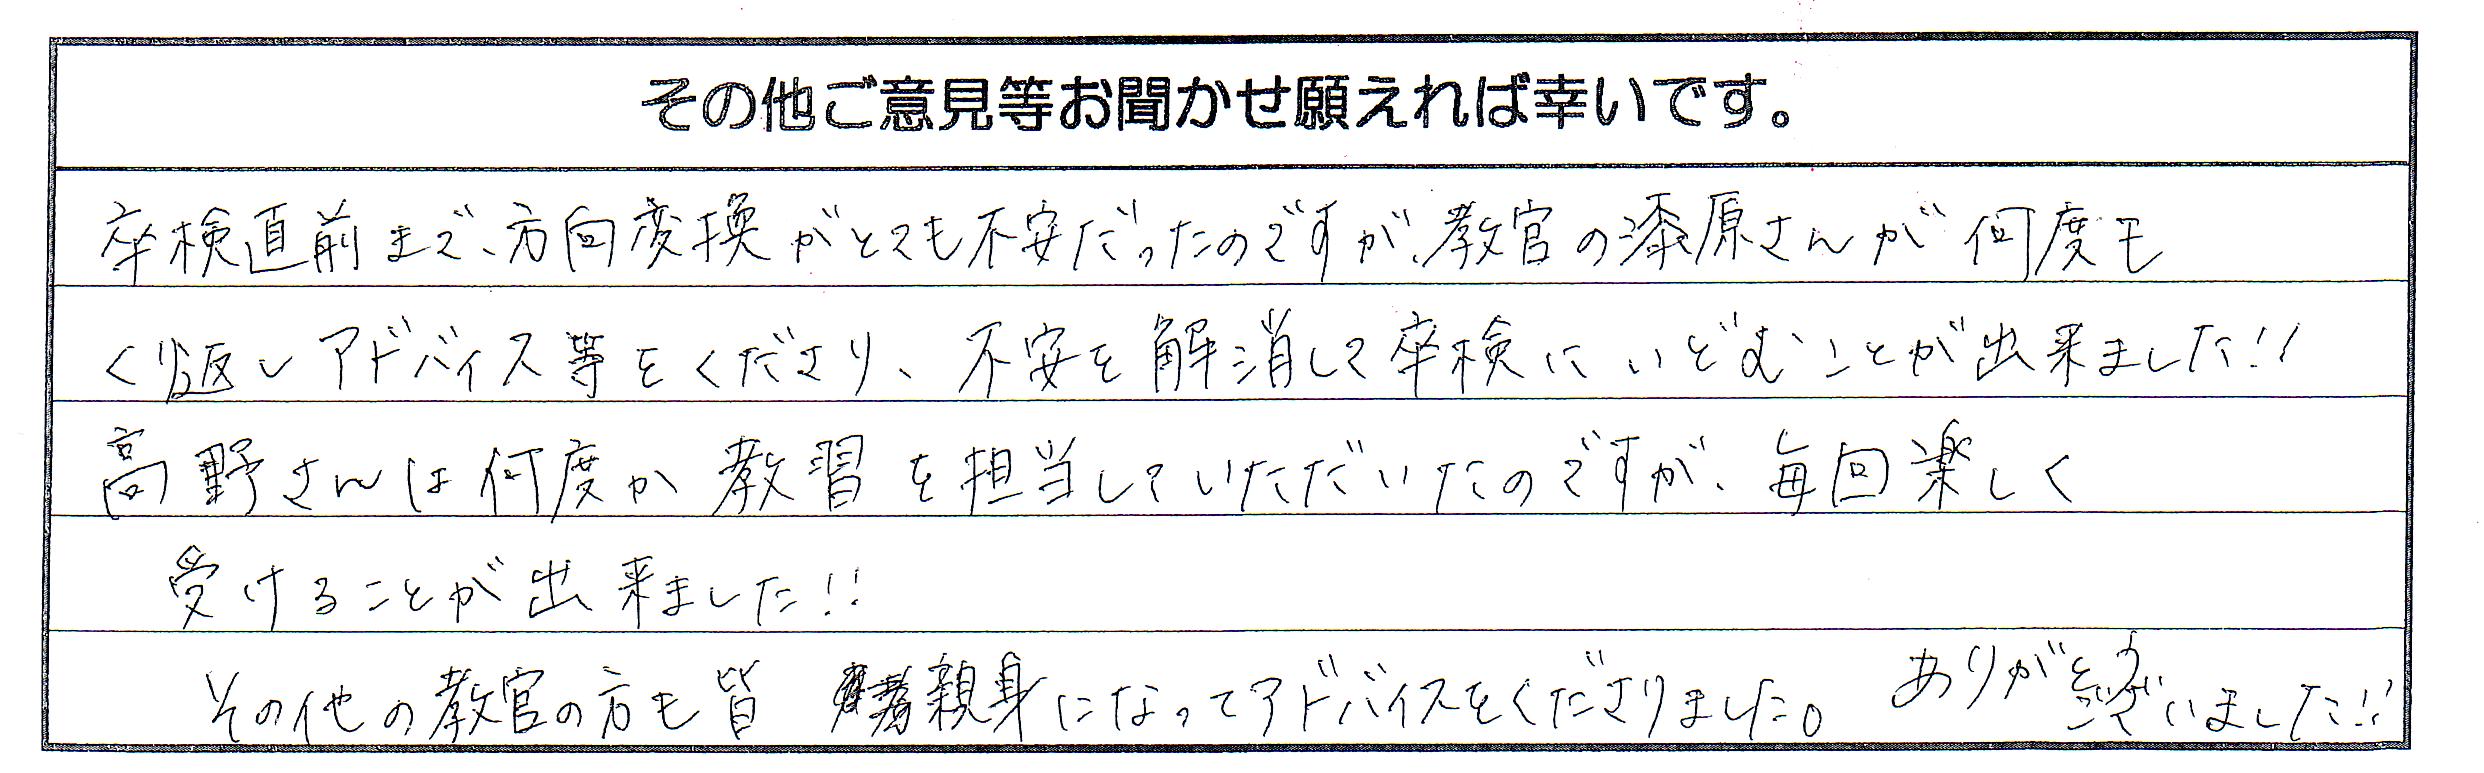 その他ご意見等お聞かせ願えれば幸いです。
卒検直前まで、方向変換がとても不安だったのですが、教官の漆原さんが何度も
くり返しアドバイス等をくださり、不安を解消して卒検にいどむことが出来ました!!
高野さんは何度か教習を担当していただいたのですが、毎回楽しく
受けることが出来ました!!
その他の教官の方も皆 親身になってアドバイスをくださりました。 ありがとうございました!!